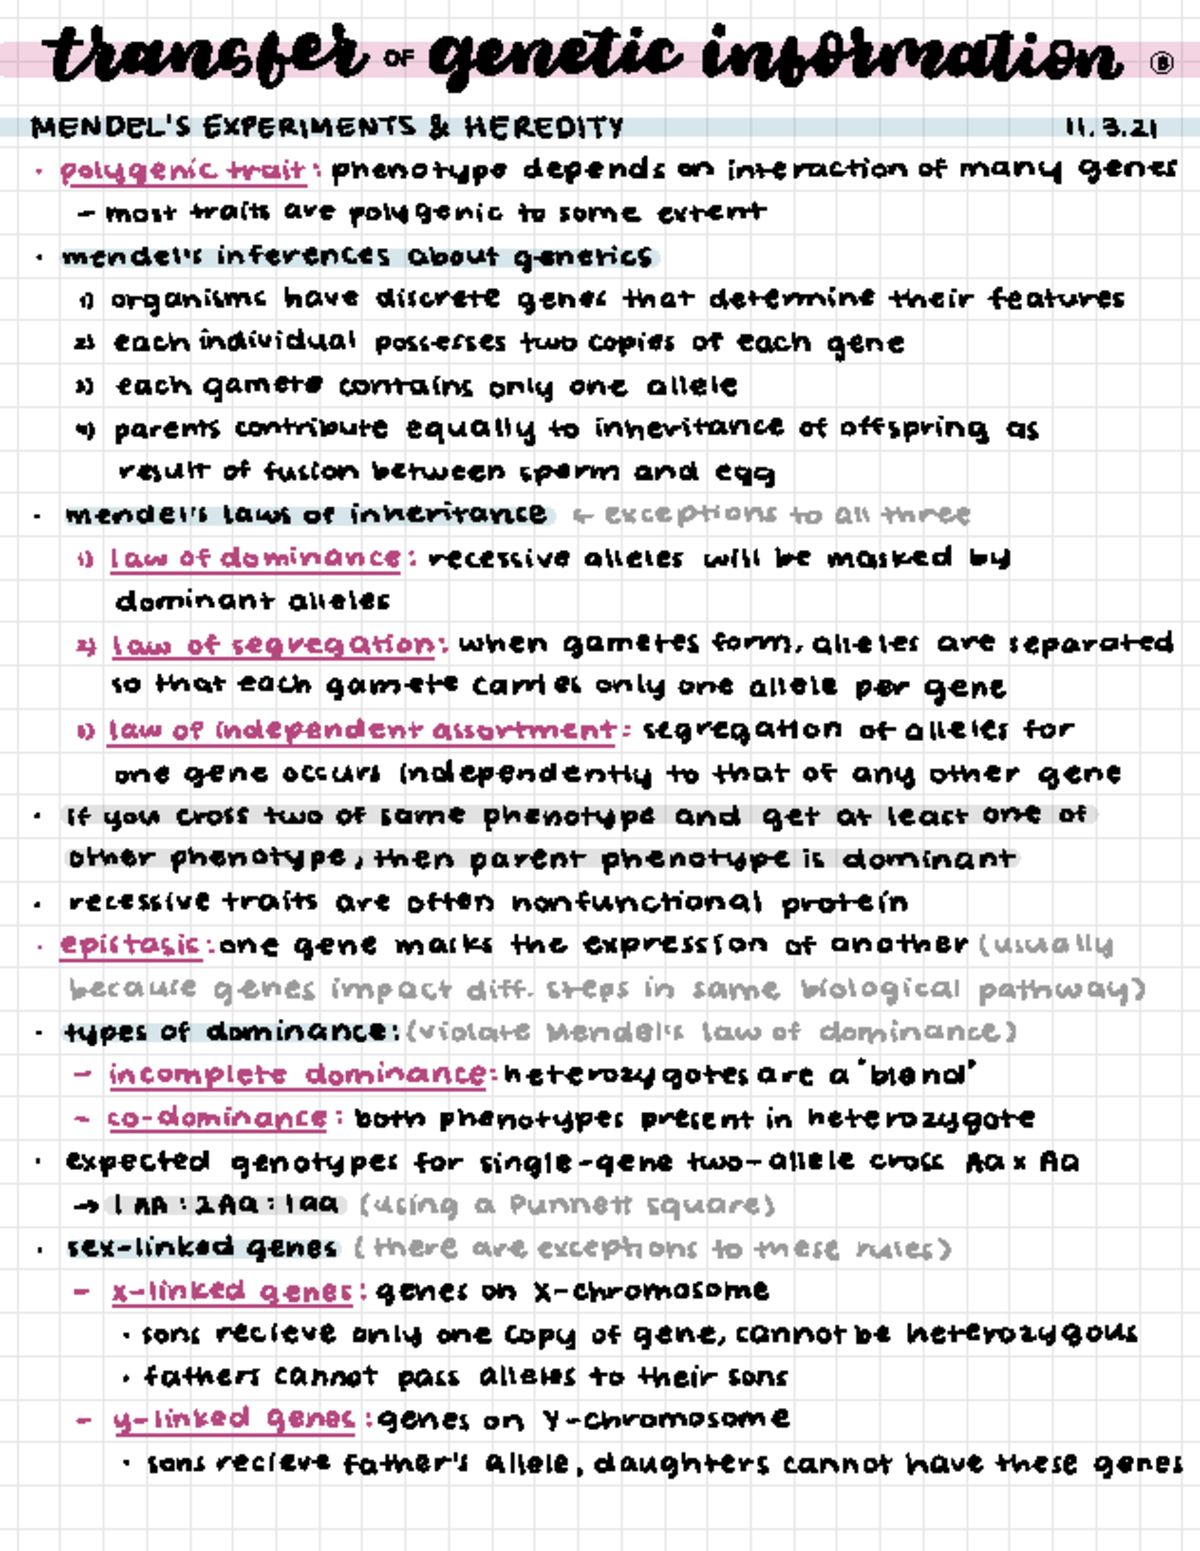 transfer OF genetic information ®
MENDEL'S EXPERIMENTS & HEREDITY 11.3.21
· polygenic trait: phenotype depends on interaction of many genes
- most traits are polygenic to some extent
· mendel's inferences about genetics
1) organisms have discrete genes that determine their features
2) each individual possesses two copies of each gene
3) each gamete contains only one allele
4) parents contribute equally to inheritance of offspring as
result of fusion between sperm and egg
· mendel's laws of inheritance ← exceptions to all three
1) law of dominance: recessive alleles will be masked by
dominant alleles
2) law of segregation: when gametes form, alleles are separated
so that each gamete carries only one allele per gene
3) law of independent assortment: segregation of alleles for
one gene occurs independently to that of any other gene
· if you cross two of same phenotype and get at least one of
other phenotype, then parent phenotype is dominant
· recessive traits are often nonfunctional protein
· epistasis: one gene masks the expression of another (usually
because genes impact diff. steps in same biological pathway)
· types of dominance: (violate Mendel's law of dominance)
- incomplete dominance: heterozygotes are a "blend"
- co-dominance: both phenotypes present in heterozygote
· expected genotypes for single-gene two-allele cross Aa x Aa
→ 1 AA : 2Aa : 1aa (using a Punnett square)
· sex-linked genes (there are exceptions to these rules)
- x-linked genes: genes on X-chromosome
· sons recieve only one copy of gene, cannot be heterozygous
· fathers cannot pass alleles to their sons
- y-linked genes: genes on Y-chromosome
· sons recieve father's allele, daughters cannot have these genes